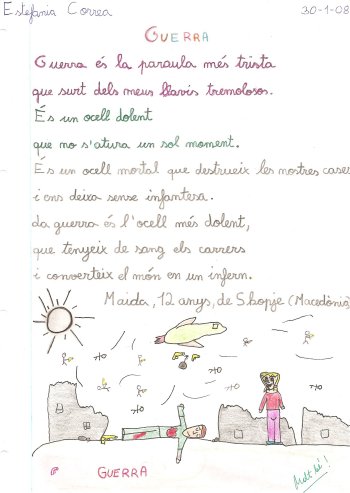 Estefania Correa
30-1-08
GUERRA
Guerra és la paraula més trista
que surt dels meus llavis tremolosos.
És un ocell dolent
que no s'atura un sol moment.
És un ocell mortal que destrueix les nostres cases
i ens deixa sense infantesa.
La guerra és l'ocell més dolent,
que tenyeix de sang els carrers
i converteix el món en un infern.
Maida, 12 anys, de Skopje (Macedònia)
GUERRA
Molt bé!